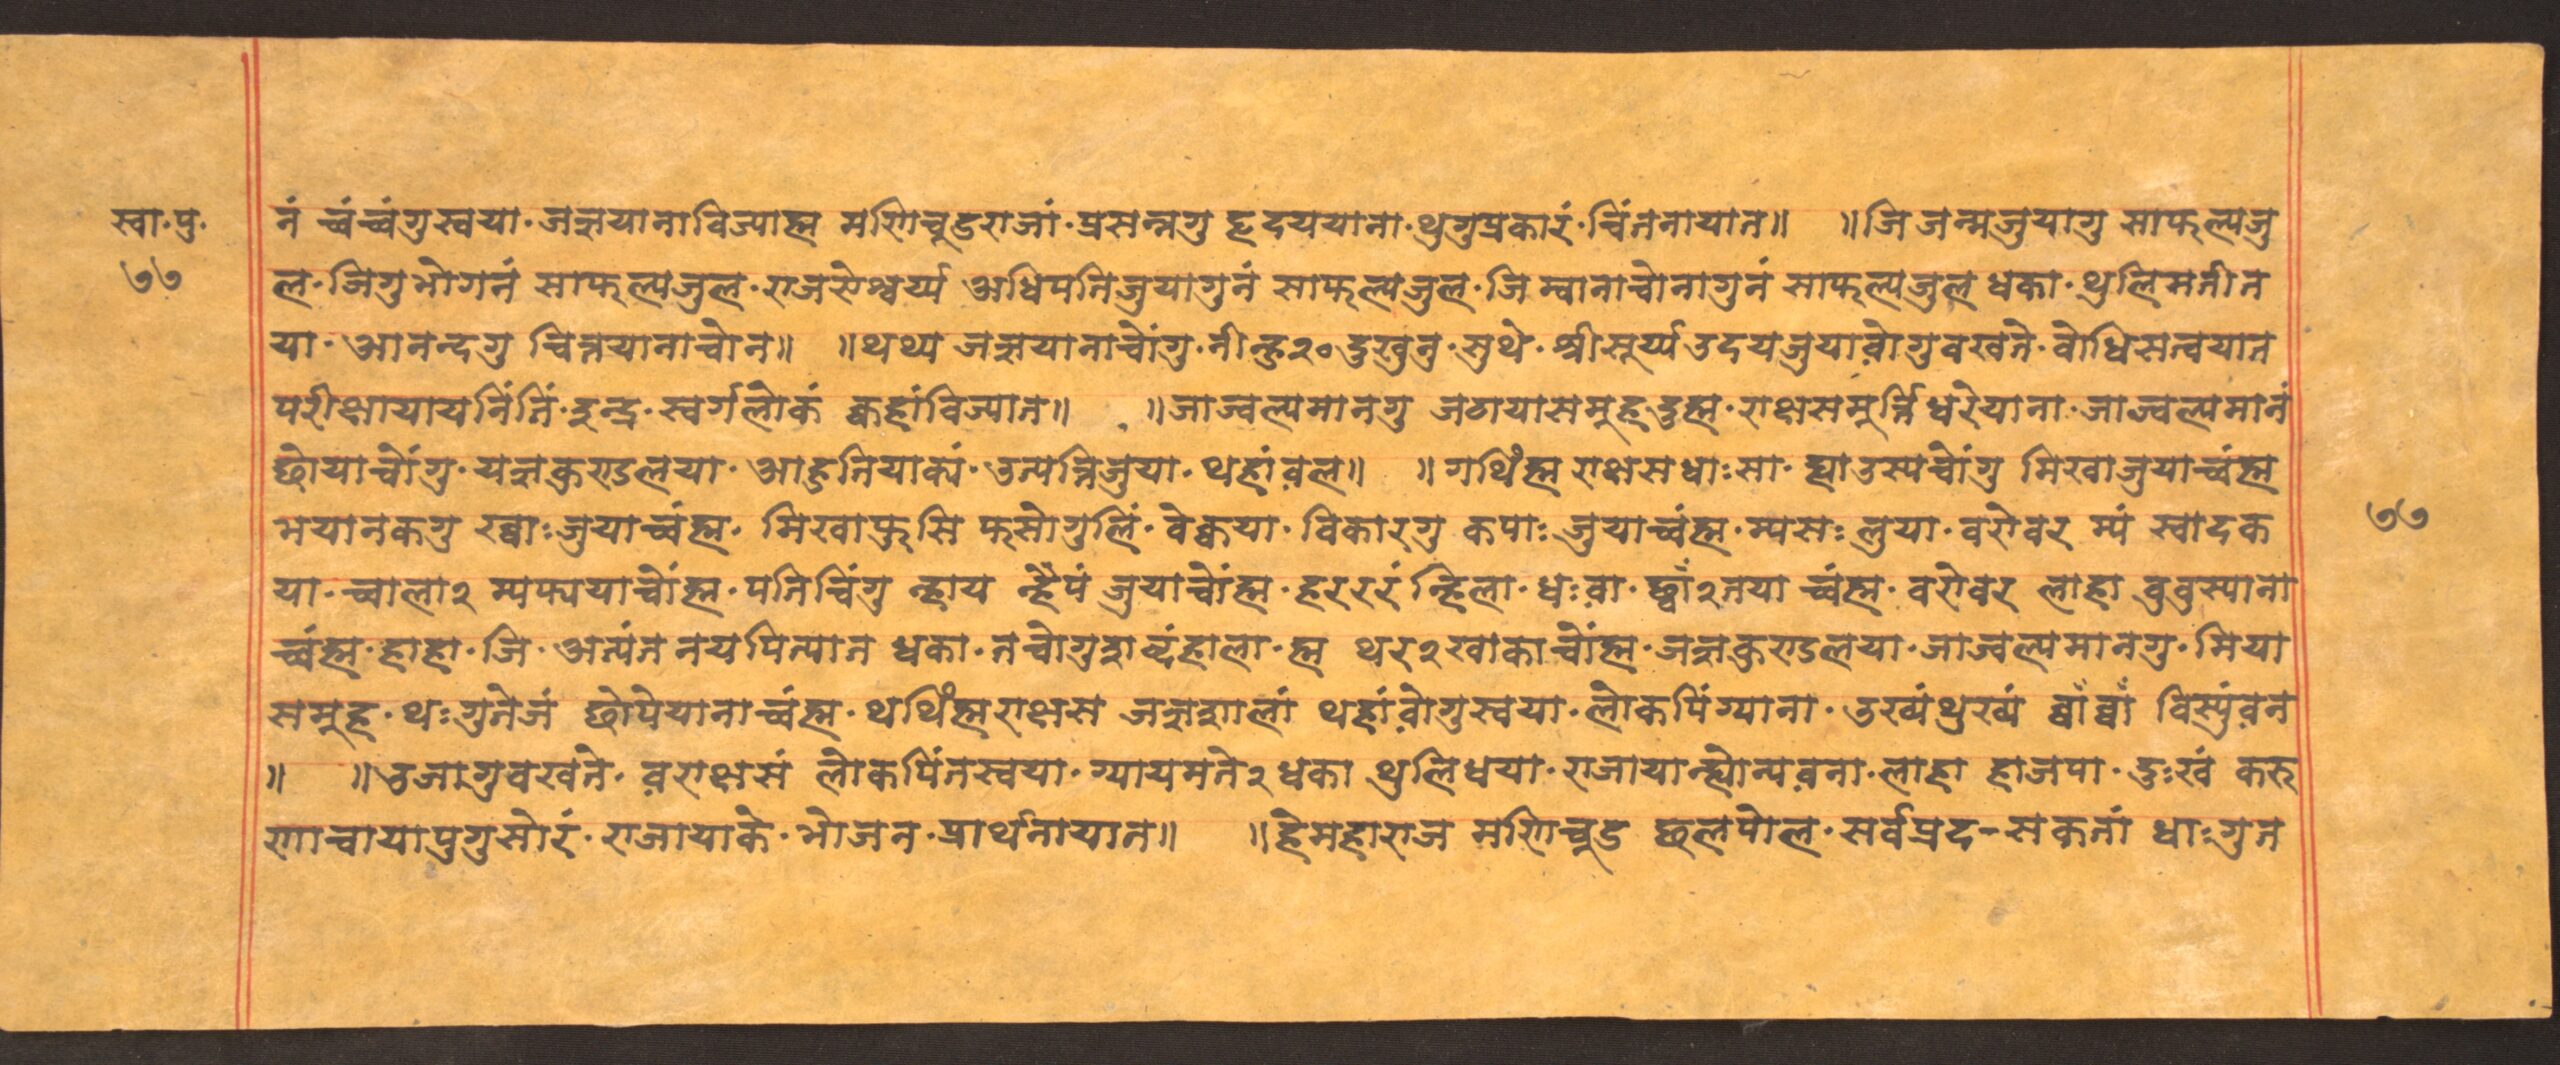 स्वा·पु·
७७
नं च्वंच्वंगुस्वया·जज्ञयानाविज्याह्म मणिचूडराजां·प्रसन्नगु हृदययाना·थुगुप्रकारं·चिंतनायात॥ ॥जि जन्मजुयागु साफल्यजु
ल·जिगुभोगनं साफल्यजुल·राजसेश्वर्य्य अधिपतिजुयागुनं साफल्यजुल·जि म्वानाचोनागुनं साफल्यजुल धका·थुलिमतीत
या·आनन्दगु चित्तयानाचोन॥ ॥थथ्य जज्ञयानाचोंगु·नीन्हु२०दुखुनु·सुथे·श्रीसूर्य्यउदयजुयावोगुवखते·वोधिसत्वयात
परीक्षायायनिंतिं·इन्द्र·स्वर्गलोकं क्वहांविज्यात॥ ॥जाज्वल्यमानगु जठायासमुहदुह्म·राक्षसमुर्त्तिधरेयाना·जाज्वल्यमानं
छोयाचोंगु·यज्ञकुण्डलया·आहुतियाक्यं·उत्पत्तिजुया·थहांवल॥ ॥गथिंह्म राक्षसधाःसा·ह्याउस्यचोंगु मिखाजुयाच्वंह्म
भयानकगु ख्वाःजुयाच्वंह्म·मिखाफुसि फसोगुलिं·वेक्वया·विकारगु कपाः जुयाच्वंह्म·म्यसः लुया·वरोवर म्यं स्वादक
या·च्वाला२ म्यफ्ययाचोंह्म·पतिचिंगु न्हाय न्हैपं जुयाचोंह्म·हररं न्हिला·धःवा·छ्वाँ२तया च्वंह्म·वरोवर लाहा वुवुस्याना
च्वंह्म·हाहा·जि·अत्यंत नयपित्यात धका·तचोगुशव्दंहाला·ह्म थर२खाकाचोंह्म·जज्ञकुण्डलया·जाज्वल्यमानगु·मिया
समुह·थःगुतेजं छोयेयानाच्वंह्म·थथिंह्मराक्षस जज्ञशालां थहांवोगुस्वया·लोकपिंग्याना·उख्यंथुख्यं ब्वाँब्वाँ विस्युंवन
॥ ॥उजागुवखते·वराक्षसं लोकपिंतस्वया·ग्यायमते२धका थुलिधया·राजायान्ह्योन्यवना·लाहा हाजपा·दुःखं करु
णाचायापुगुसोरं·राजायाके·भोजन·प्रार्थनायात॥ ॥हेमहाराज मणिचूड छलपोल·सर्वप्रद-सकतां धाःगुत
७७